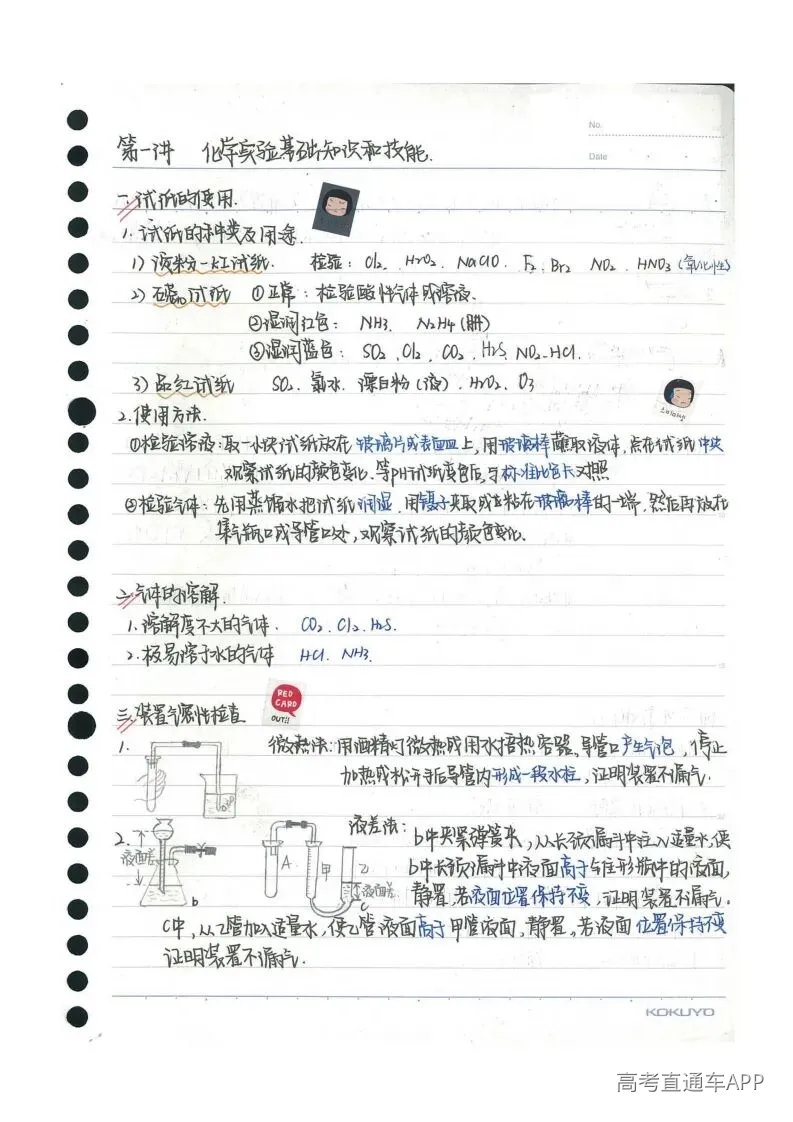 No.
Date
第一讲 化学实验基础知识和技能.
一.试纸的使用.
1.试纸的种类及用途.
1)淀粉-KI试纸. 检验: Cl₂. H₂O₂. NaClO. F₂. Br₂ NO₂. HNO₃(氧化性)
2)石蕊试纸 ①正常: 检验酸性气体或溶液.
②湿润红色: NH₃. N₂H₄(肼)
③湿润蓝色: SO₂.Cl₂. CO₂. H₂S. NO₂.HCl.
3)品红试纸 SO₂.氯水.漂白粉(液).H₂O₂.O₃
2.使用方法.
①检验溶液:取一小块试纸放在玻璃片或表面皿上,用玻璃棒蘸取液体,点在试纸中央
观察试纸的颜色变化.等pH试纸变色后,与标准比色卡对照
②检验气体:先用蒸馏水把试纸润湿.用镊子夹取或粘在玻璃棒的一端,然后再放在
集气瓶口或导管口处,观察试纸的颜色变化.
二.气体的溶解.
1.溶解度不大的气体. CO₂.Cl₂.H₂S.
2.极易溶于水的气体 HCl. NH₃.
三.装置气密性检查
RED
CARD
OUT!!
1.
微热法:用酒精灯微热或用水捂热容器.导管口产生气泡,停止
加热或松开手后导管内形成一段水柱,证明装置不漏气.
2.
液面差
b
A
甲
乙
液面差
C
液差法:
b中夹紧弹簧夹,从长颈漏斗中注入适量水,使
b中长颈漏斗中液面高于锥形瓶中的液面,
静置,若液面位置保持不变,证明装置不漏气.
C中,从乙管加入适量水,使乙管液面高于甲管液面,静置,若液面位置保持不变
证明装置不漏气.
KOKUYO
高考直通车APP